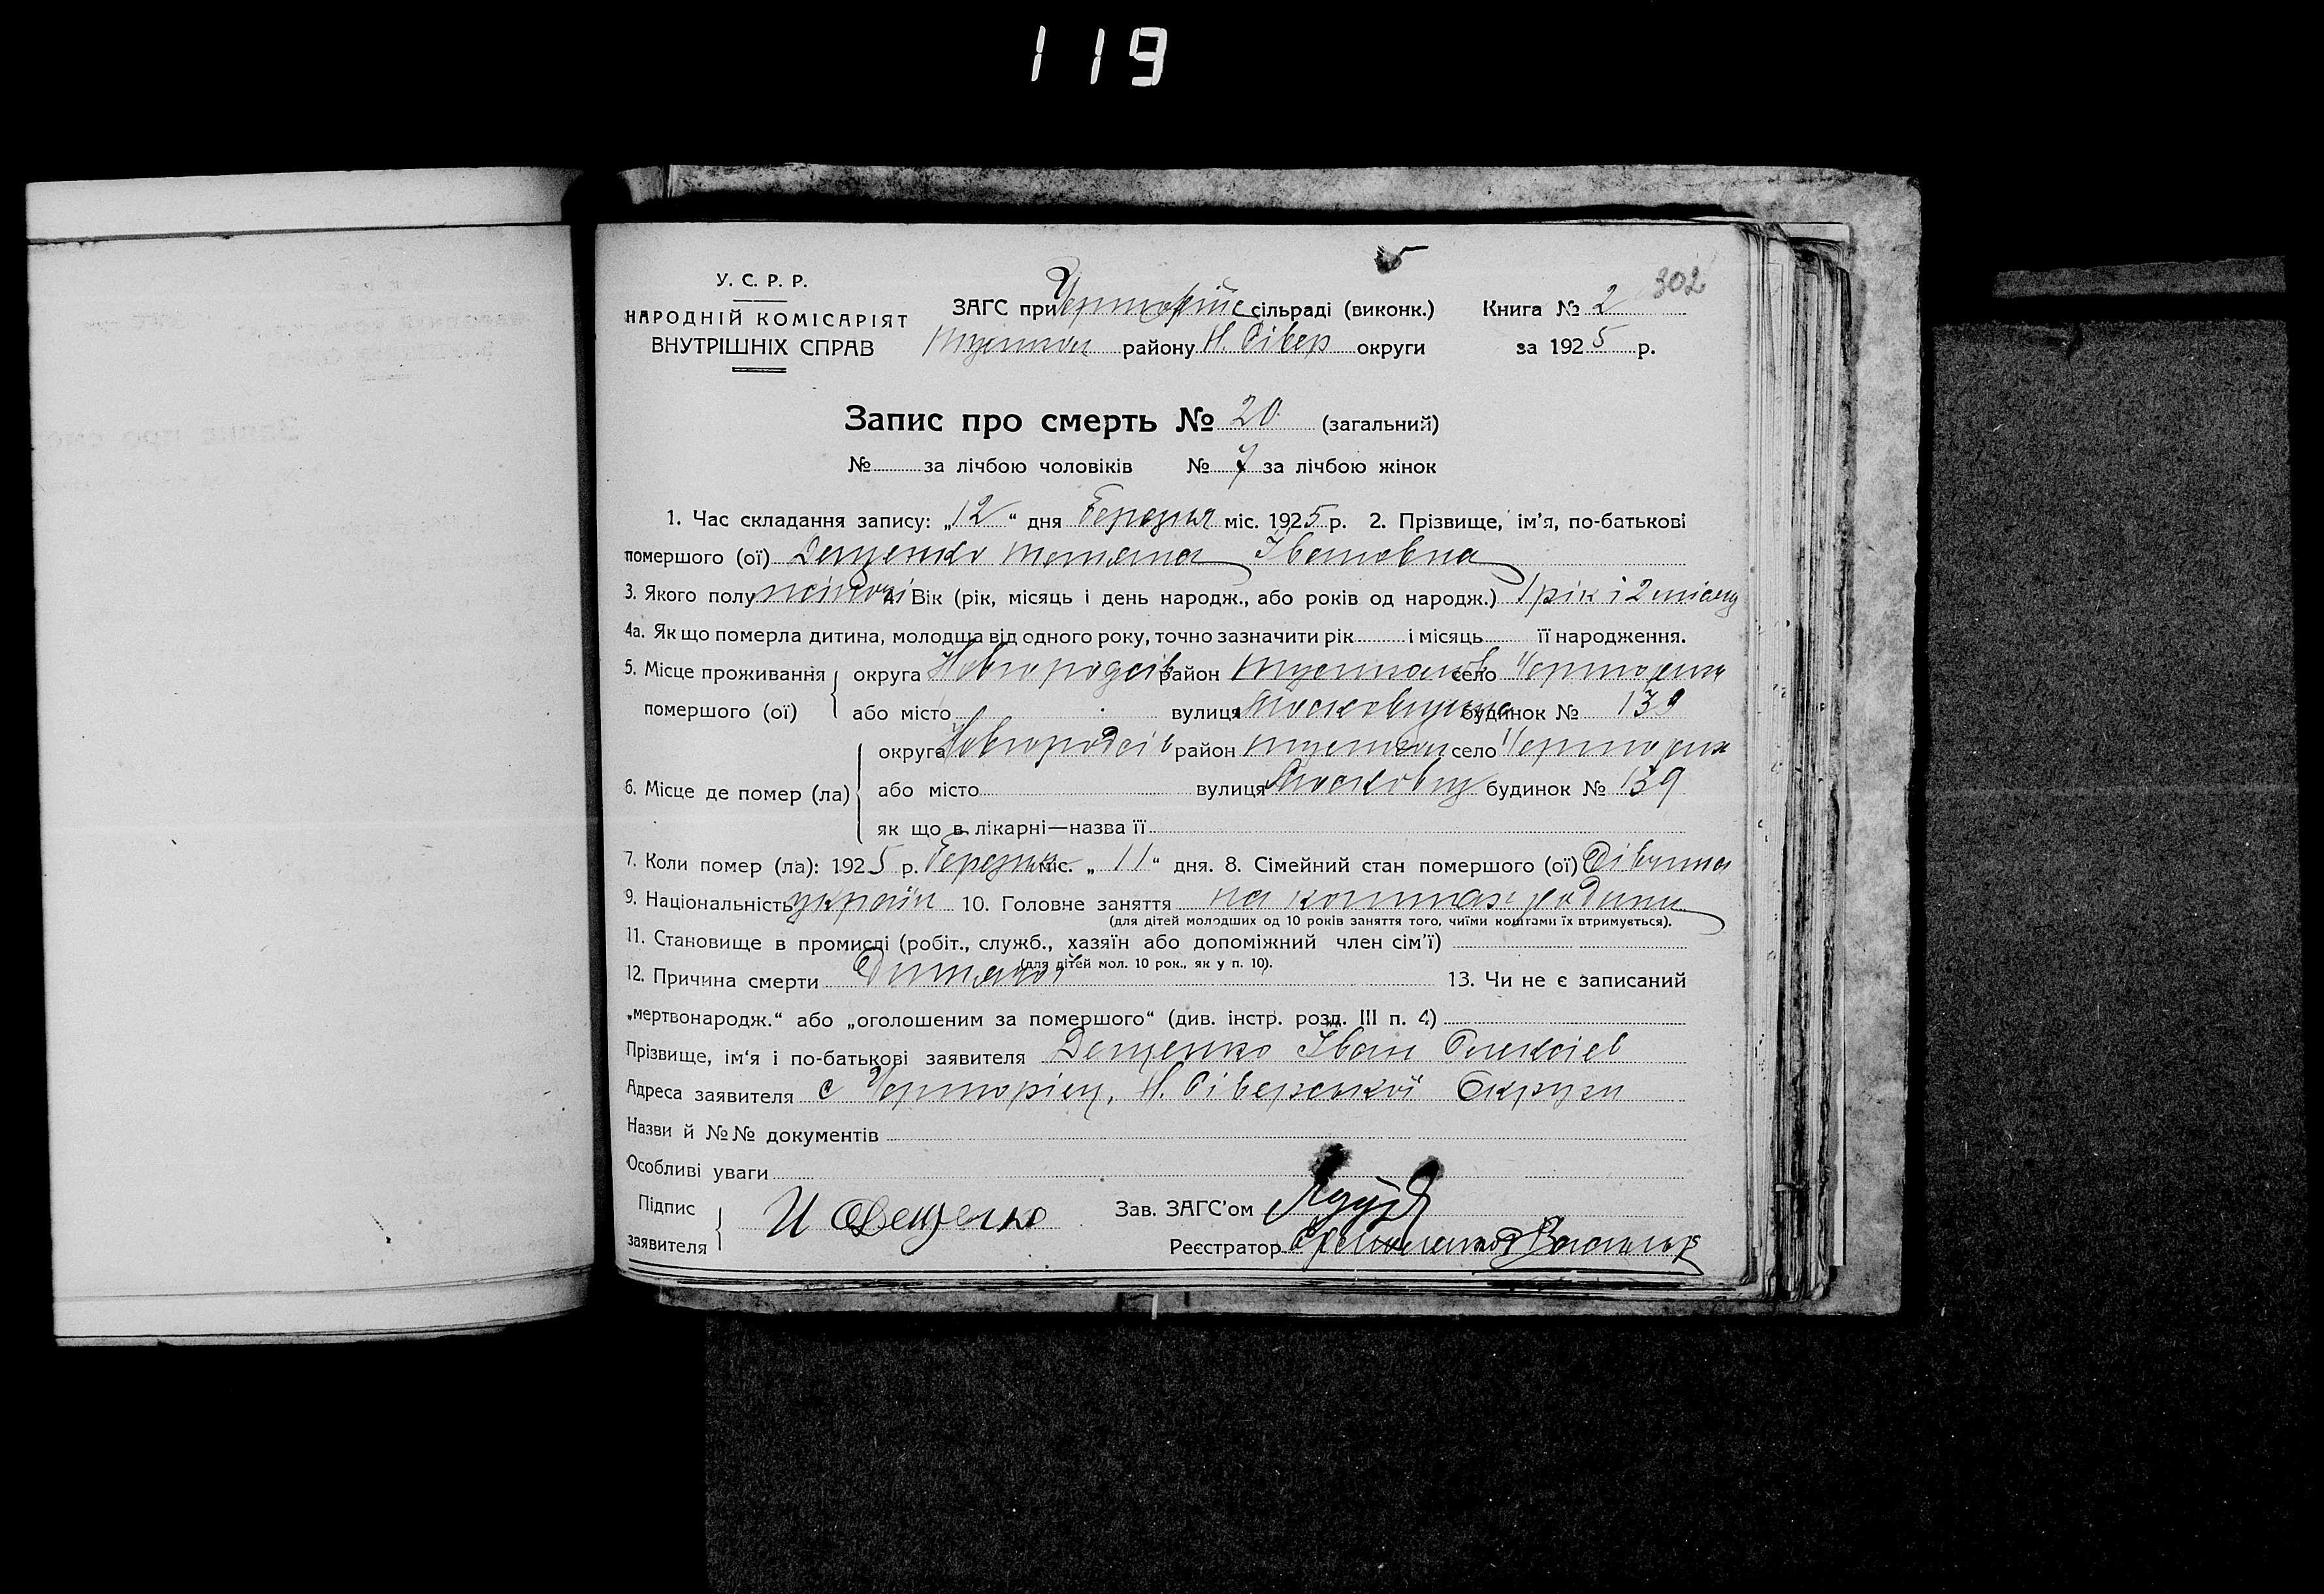 119
302
У. С. Р. Р.
НАРОДНІЙ КОМІСАРІЯТ
ВНУТРІШНІХ СПРАВ
ЗАГС при сільраді (виконк.)
району Н. Сівер округи
Книга № 2
за 1925 р.
Запис про смерть № 20 (загальний)
№ за лічбою чоловіків № 7 за лічбою жінок
1. Час складання запису: „12“ дня Березня міс. 1925 р. 2. Прізвище, ім'я, по-батькові
помершого (ої) Дещенко Тетяна Івановна
3. Якого полу жіночі 4. Вік (рік, місяць і день народж., або років од народж.) 1 рік і 2 місяц
4а. Як що померла дитина, молодща від одного року, точно зазначити рік і місяць її народження.
5. Місце проживання помершого (ої)
округа Новгородсів район село
або місто вулиця будинок № 139
6. Місце де помер (ла)
округа Новгородсів район село
або місто вулиця будинок № 139
як що в лікарні—назва її
7. Коли помер (ла): 1925 р. Березня міс. „11“ дня. 8. Сімейний стан помершого (ої) Дівчина
9. Національність україн 10. Головне заняття на коштах родини
(для дітей молодших од 10 років заняття того, чиїми коштами їх втримується).
11. Становище в промислі (робіт., служб., хазяїн або допоміжний член сім'ї)
(для дітей мол. 10 рок., як у п. 10).
12. Причина смерти 13. Чи не є записаний
„мертвонародж.“ або „оголошеним за помершого“ (див. інстр. розд. III п. 4)
Прізвище, ім'я і по-батькові заявителя Дещенко Іван Олексіев
Адреса заявителя с Чорторієц, Н. Сіверської Округи
Назви й №№ документів
Особливі уваги
Підпис заявителя И Дещенко
Зав. ЗАГС'ом
Реєстратор